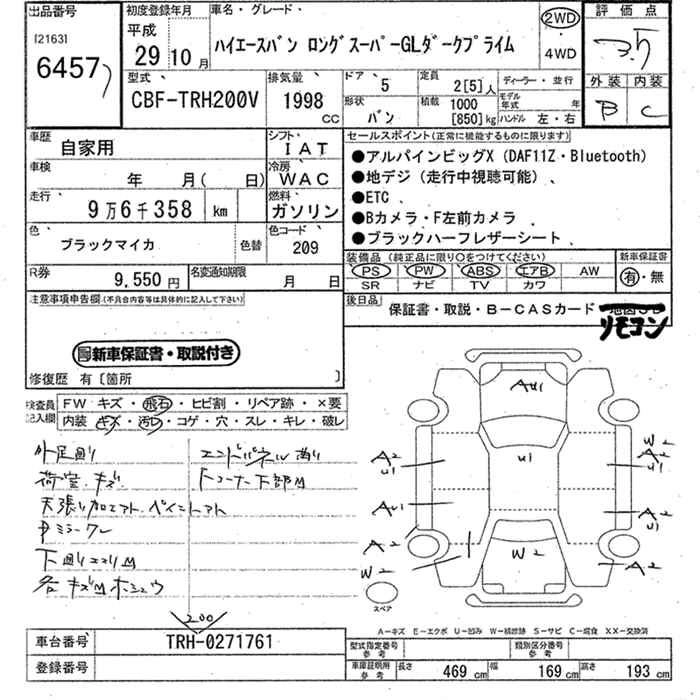 出品番号 初度登録年月 車名・グレード・ 評価点
[2163] 平成 ②WD
6457 29 10月 ハイエースバン ロングスーパーGLダークプライム ・ 3.5
4WD
型式 排気量 ドア 5 定員 2[5]人 ディーラー・並行 外装 内装
CBF-TRH200V 1998 cc 形状 バン 積載 1000 [850]kg モデル年式 年 B C
ハンドル 左・右
車歴 自家用 シフト IAT セールスポイント(正常に機能するものに限ります)
車検 年 月( 日) 冷房 WAC ●アルパインビッグX (DAF11Z・Bluetooth)
走行 9万6千358 km 燃料 ガソリン ●地デジ (走行中視聴可能) 、
●ETC 、
色 ブラックマイカ 色替 色コード 209 ●Bカメラ・F左前カメラ 、
●ブラックハーフレザーシート 、
R券 9,550円 名変通知期限 月 日 装備品 (純正品に限り○をつけてください) 新車保証書
PS ・ PW ・ ABS ・ エアB ・ AW 有・無
SR ナビ TV カワ
注意事項申告欄(不具合内容等は具体的に記入して下さい) 後日品 保証書・取説・B-CASカード・
リモコン
新車保証書・取説付き
修復歴 有[箇所 ]
検査員記入欄 FW キズ・飛石・ヒビ割・リペア跡・×要
内装 キズ・汚レ・コゲ・穴・スレ・キレ・破レ
外足廻り エンドパネル
荷室.キズ 下コーナー下部
天張り加工アト.ペイントアト
中ミラーワレ
下廻り
各キズ
200
AU1
U1
A2 U1
W2 A2 U1
AU1
A2 U1
A2
W2
W2
A2
スペア
A-キズ E-エクボ U-凹み W-補修跡 S-サビ C-腐食 XX-交換済
車台番号 TRH-0271761 型式指定番号 参考 類別区分番号 参考
登録番号 車庫証明用 参考 長さ 469 cm 幅 169 cm 高さ 193 cm